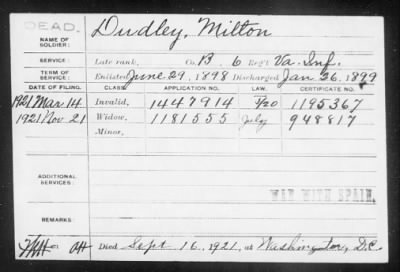 DEAD.
NAME OF SOLDIER: Dudley, Milton
SERVICE: Late rank, Co. B, 6 Reg't Va. Inf.
TERM OF SERVICE: Enlisted June 29, 1898 Discharged Jan. 26, 1899
DATE OF FILING. CLASS. APPLICATION NO. LAW. CERTIFICATE NO.
1921 Mar 14 Invalid, 1447914 7/20 1195367
1921 Nov 21 Widow, 1181555 July 948817
Minor,
ADDITIONAL SERVICES:
WAR WITH SPAIN.
REMARKS:
Died Sept 16, 1921, at Washington, D.C.